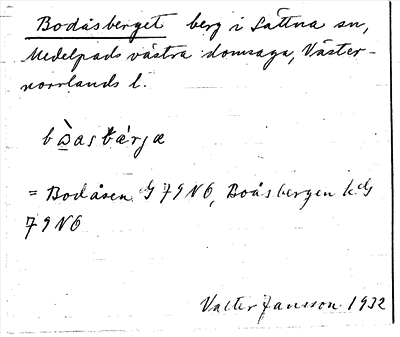 Bodåsberget berg i Sättna sn,
Medelpads västra domsaga, Väster-
norrlands l.
= Bodåsen G 79 N6, Boåsbergen k. G
79 N6
Valter Jansson 1932